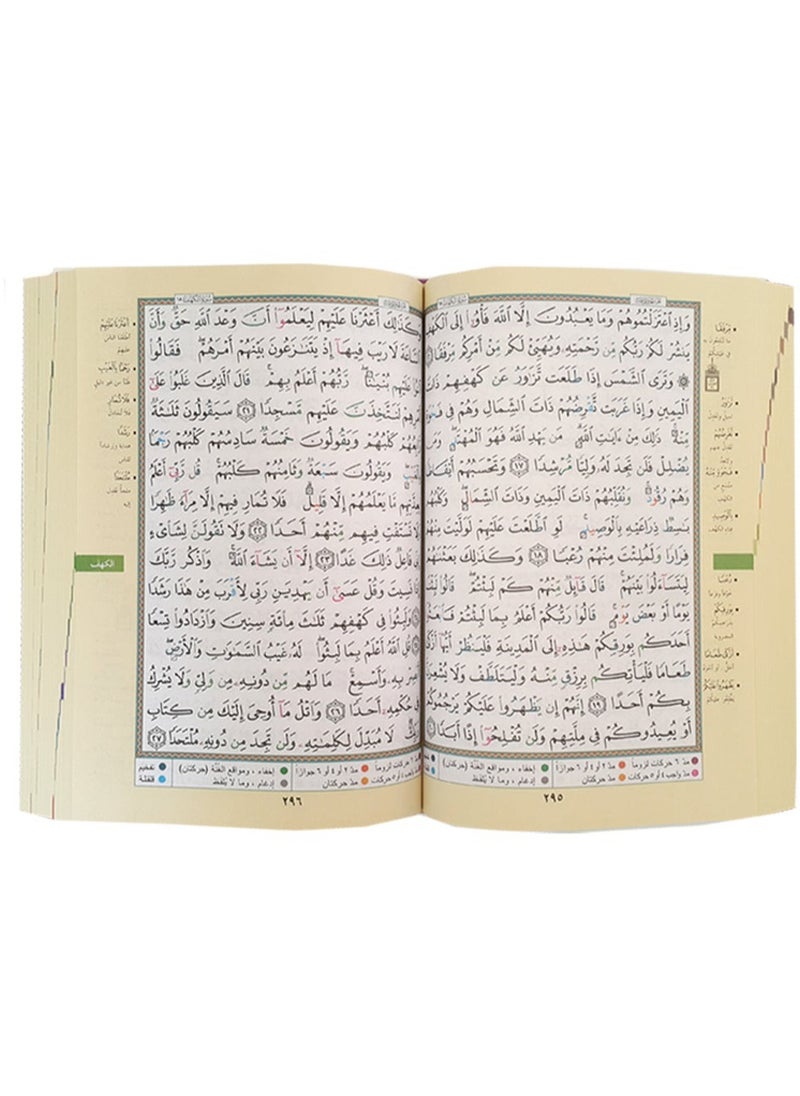 سُورَةُ الكَهْفِ ١٨
وَإِذِ ٱعْتَزَلْتُمُوهُمْ وَمَا يَعْبُدُونَ إِلَّا ٱللَّهَ فَأْوُۥٓا۟ إِلَى ٱلْكَهْفِ
يَنشُرْ لَكُمْ رَبُّكُم مِّن رَّحْمَتِهِۦ وَيُهَيِّئْ لَكُم مِّنْ أَمْرِكُم مِّرْفَقًا
۞ وَتَرَى ٱلشَّمْسَ إِذَا طَلَعَت تَّزَٰوَرُ عَن كَهْفِهِمْ ذَاتَ
ٱلْيَمِينِ وَإِذَا غَرَبَت تَّقْرِضُهُمْ ذَاتَ ٱلشِّمَالِ وَهُمْ فِى فَجْوَةٍ
مِّنْهُ ۚ ذَٰلِكَ مِنْ ءَايَٰتِ ٱللَّهِ ۗ مَن يَهْدِ ٱللَّهُ فَهُوَ ٱلْمُهْتَدِ ۖ
يُضْلِلْ فَلَن تَجِدَ لَهُۥ وَلِيًّا مُّرْشِدًا ١٧ وَتَحْسَبُهُمْ أَيْقَاظًا
وَهُمْ رُقُودٌ ۚ وَنُقَلِّبُهُمْ ذَاتَ ٱلْيَمِينِ وَذَاتَ ٱلشِّمَالِ ۖ وَكَلْبُهُم
بَٰسِطٌ ذِرَاعَيْهِ بِٱلْوَصِيدِ ۚ لَوِ ٱطَّلَعْتَ عَلَيْهِمْ لَوَلَّيْتَ مِنْهُمْ
فِرَارًا وَلَمُلِئْتَ مِنْهُمْ رُعْبًا ١٨ وَكَذَٰلِكَ بَعَثْنَٰهُمْ
لِيَتَسَآءَلُوا۟ بَيْنَهُمْ ۚ قَالَ قَآئِلٌ مِّنْهُمْ كَمْ لَبِثْتُمْ ۖ قَالُوا۟ لَبِثْنَا
يَوْمًا أَوْ بَعْضَ يَوْمٍ ۚ قَالُوا۟ رَبُّكُمْ أَعْلَمُ بِمَا لَبِثْتُمْ فَٱبْعَثُوٓا۟
أَحَدَكُم بِوَرِقِكُمْ هَٰذِهِۦٓ إِلَى ٱلْمَدِينَةِ فَلْيَنظُرْ أَيُّهَآ أَزْكَىٰ
طَعَامًا فَلْيَأْتِكُم بِرِزْقٍ مِّنْهُ وَلْيَتَلَطَّفْ وَلَا يُشْعِرَنَّ
بِكُمْ أَحَدًا ١٩ إِنَّهُمْ إِن يَظْهَرُوا۟ عَلَيْكُمْ يَرْجُمُوكُمْ
أَوْ يُعِيدُوكُمْ فِى مِلَّتِهِمْ وَلَن تُفْلِحُوٓا۟ إِذًا أَبَدًا ٢٠
مِرْفَقًا
تَزَاوَرُ
تَقْرِضُهُمْ
فَجْوَةٍ مِنْهُ
بِالْوَصِيدِ
رُعْبًا
بِوَرِقِكُمْ
أَزْكَى طَعَامًا
يَظْهَرُوا عَلَيْكُمْ
مدّ ٦ حركات لزوماً مدّ ٢ أو ٤ أو ٦ جوازاً إخفاء ، ومواقع الغُنَّة (حركتان)
مدّ واجب ٤ أو ٥ حركات مدّ حركتان إدغام ، وما لا يُلفَظ
٢٩٥
سُورَةُ الكَهْفِ ١٨
وَكَذَٰلِكَ أَعْثَرْنَا عَلَيْهِمْ لِيَعْلَمُوٓا۟ أَنَّ وَعْدَ ٱللَّهِ حَقٌّ وَأَنَّ
ٱلسَّاعَةَ لَا رَيْبَ فِيهَآ إِذْ يَتَنَٰزَعُونَ بَيْنَهُمْ أَمْرَهُمْ ۖ فَقَالُوا۟
عَلَيْهِم بُنْيَٰنًا ۖ رَّبُّهُمْ أَعْلَمُ بِهِمْ ۚ قَالَ ٱلَّذِينَ غَلَبُوا۟ عَلَىٰٓ
أَمْرِهِمْ لَنَتَّخِذَنَّ عَلَيْهِم مَّسْجِدًا ٢١ سَيَقُولُونَ ثَلَٰثَةٌ
رَّابِعُهُمْ كَلْبُهُمْ وَيَقُولُونَ خَمْسَةٌ سَادِسُهُمْ كَلْبُهُمْ رَجْمًۢا
بِٱلْغَيْبِ ۖ وَيَقُولُونَ سَبْعَةٌ وَثَامِنُهُمْ كَلْبُهُمْ ۚ قُل رَّبِّىٓ أَعْلَمُ
بِعِدَّتِهِم مَّا يَعْلَمُهُمْ إِلَّا قَلِيلٌ ۗ فَلَا تُمَارِ فِيهِمْ إِلَّا مِرَآءً ظَٰهِرًا
وَلَا تَسْتَفْتِ فِيهِم مِّنْهُمْ أَحَدًا ٢٢ وَلَا تَقُولَنَّ لِشَا۟ىْءٍ
إِنِّى فَاعِلٌ ذَٰلِكَ غَدًا ٢٣ إِلَّآ أَن يَشَآءَ ٱللَّهُ ۚ وَٱذْكُر رَّبَّكَ
إِذَا نَسِيتَ وَقُلْ عَسَىٰٓ أَن يَهْدِيَنِ رَبِّى لِأَقْرَبَ مِنْ هَٰذَا رَشَدًا
وَلَبِثُوا۟ فِى كَهْفِهِمْ ثَلَٰثَ مِا۟ئَةٍ سِنِينَ وَٱزْدَادُوا۟ تِسْعًا
قُلِ ٱللَّهُ أَعْلَمُ بِمَا لَبِثُوا۟ ۖ لَهُۥ غَيْبُ ٱلسَّمَٰوَٰتِ وَٱلْأَرْضِ ۖ
أَبْصِرْ بِهِۦ وَأَسْمِعْ ۚ مَا لَهُم مِّن دُونِهِۦ مِن وَلِىٍّ وَلَا يُشْرِكُ
فِى حُكْمِهِۦٓ أَحَدًا ٢٦ وَٱتْلُ مَآ أُوحِىَ إِلَيْكَ مِن كِتَابِ
رَبِّكَ ۖ لَا مُبَدِّلَ لِكَلِمَٰتِهِۦ وَلَن تَجِدَ مِن دُونِهِۦ مُلْتَحَدًا ٢٧
أَعْثَرْنَا عَلَيْهِمْ
أطلعنا الناس
عليهم
رَجْمًا بِالْغَيْبِ
ظنّاً من غير دليل
فَلَا تُمَارِ
فلا تجادل
رَشَدًا
هداية وإرشاداً
مُلْتَحَدًا
الكهف
حركات لزوماً مدّ ٢ أو ٤ أو ٦ جوازاً إخفاء ، ومواقع الغُنَّة (حركتان) تفخيم
واجب ٤ أو ٥ حركات مدّ حركتان إدغام ، وما لا يُلفَظ قلقلة
٢٩٦